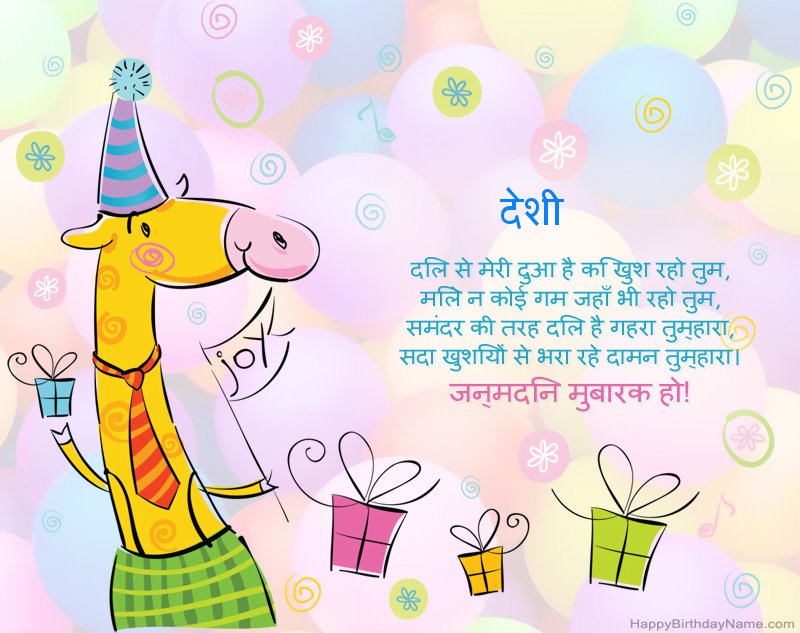 देशी
दलि से मेरी दुआ है क िखुश रहो तुम,
मलिे न कोई गम जहाँ भी रहो तुम,
समंदर की तरह दलि है गहरा तुम्हारा,
सदा खुशयिों से भरा रहे दामन तुम्हारा।
जन्मदनि मुबारक हो!
joy
HappyBirthdayName.com